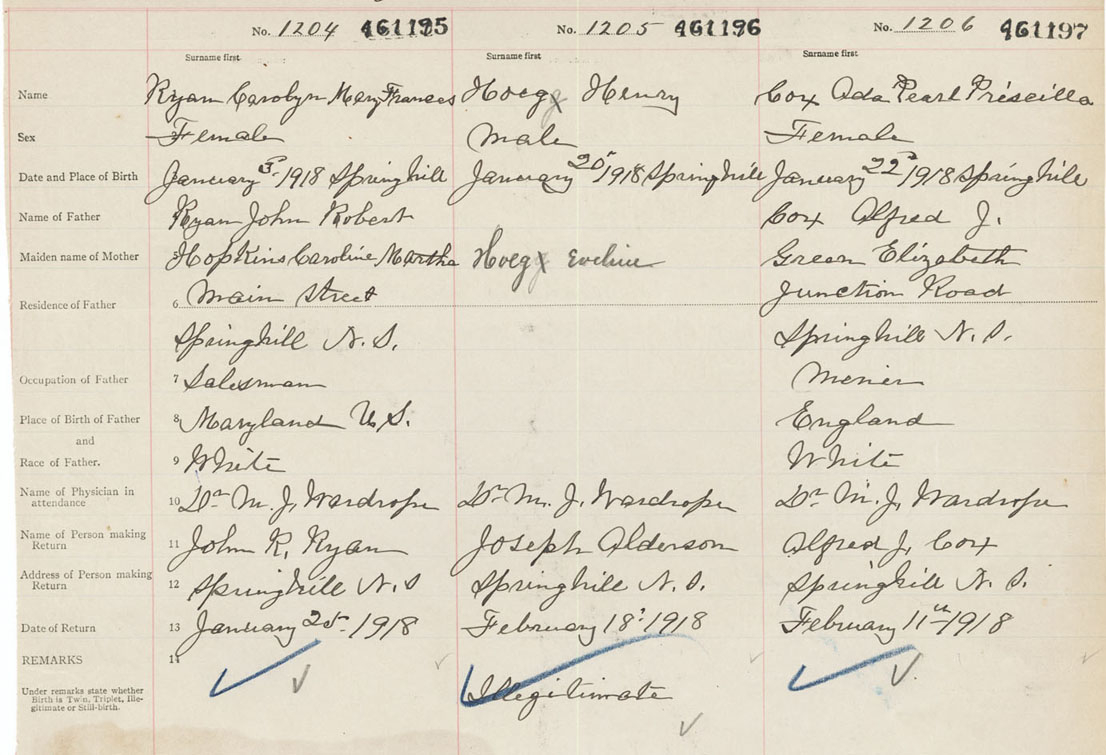 No. 1204 461195 No. 1205 461196 No. 1206 461197
Surname first Surname first Surname first
Name Ryan Carolyn Mary Frances Hoegg Henry Cox Ada Pearl Priscilla
Sex Female Male Female
Date and Place of Birth January 1918 Springhill January 20 1918 Springhill January 22 1918 Springhill
Name of Father Ryan John Robert Cox Alfred J.
Maiden name of Mother 5 Hopkins Caroline Martha Hoegg Eveline Green Elizabeth
Residence of Father 6 Main Street Junction Road
Springhill N. S. Springhill N. S.
Occupation of Father 7 Salesman Menier
Place of Birth of Father 8 Maryland U.S. England
and
Race of Father. 9 White White
Name of Physician in attendance 10 Dr M. J. Wardrope Dr M. J. Wardrope Dr M. J. Wardrope
Name of Person making Return 11 John R. Ryan Joseph Alderson Alfred J. Cox
Address of Person making Return 12 Springhill N. S Springhill N. S. Springhill N. S.
Date of Return 13 January 25 1918 February 18 1918 February 11th 1918
REMARKS 14
Under remarks state whether
Birth is Twin, Triplet, Ille-
gitimate or Still-birth.
Illegitimate